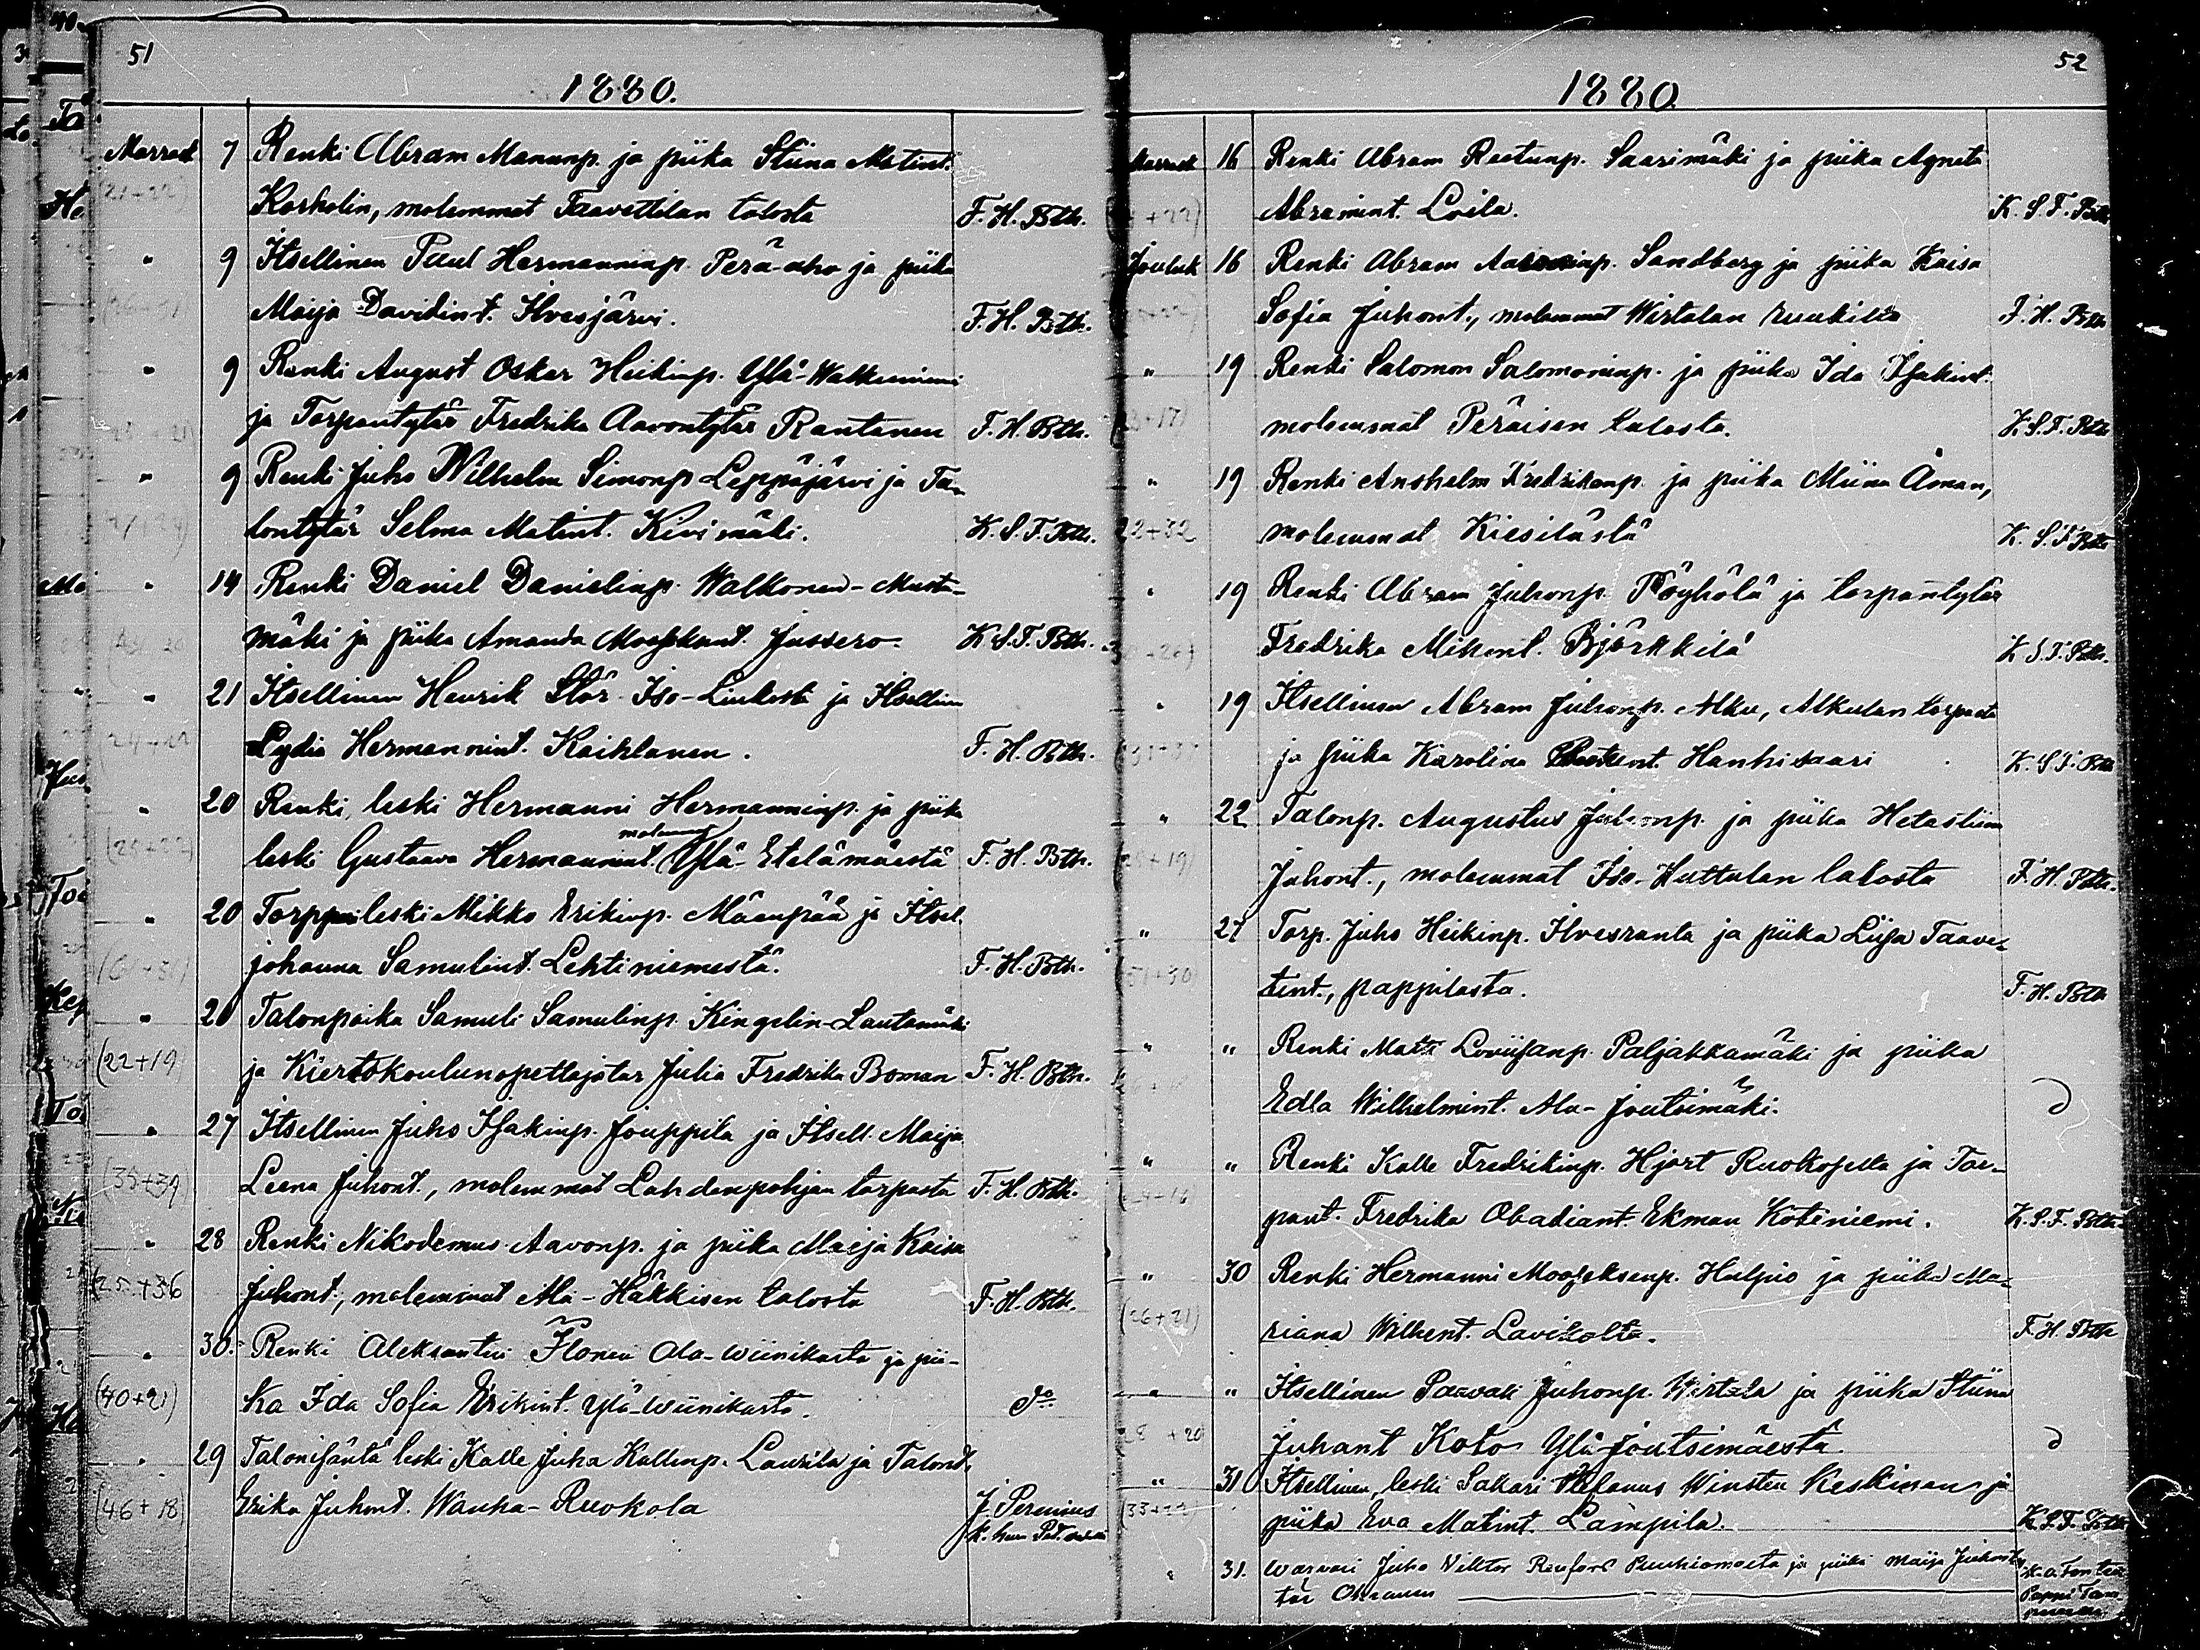 51
1880.
Marrask 7 Renki Abram Manunp. ja piika Stiina Matint.
(21+22) Korholin, molemmat Taavettilan talosta F. H. Bth.
" 9 Itsellinen Paul Hermanninp. Perä-aho ja piika
Maija Davidint. Ilvesjärvi. F. H. Bth.
" 9 Renki August Oskar Heikinp. Ylä-Walkeiniemi
ja Torpantytär Fredrika Aavontytär Rantanen F. H. Bth.
" 9 Renki Juho Wilhelm Simonp Leppäjärvi ja Ta-
lontytär Selma Matint. Kivimäki. K. S. F. Bth.
" 14 Renki Daniel Danielinp. Walkonen-Musta-
mäki ja piika Amanda Jussero. K. S. F. Bth.
" 21 Itsellinen Henrik Stör Iso- ja Itsellin
Lydia Hermannint. Kaihlanen. F. H. Bth.
" 20 Renki, leski Hermanni Hermanninp. ja piika
leski Gustaava Hermannint. Ylä-Etelämäestä F. H. Bth.
" 20 leski Mikko Erikinp. Mäenpää ja Itsel.
(61+31) Johanna Samulint. Lehtiniemestä. F. H. Bth.
" 20 Talonpoika Samuli Samulinp. Kingelin-Lautamäki
(22+19) ja Kiertokoulunopettajatar Julia Fredrika Boman F. H. Bth.
" 27 Itsellinen Juho Isakinp. Jouppila ja Itsell. Maija
(35+39) Leena Juhont., molemmat Lahdenpohjan torpasta F. H. Bth.
" 28 Renki Nikodemus Aavonp. ja piika Maija Kaisa
(25+36 Juhont., molemmat Ala-Häkkisen talosta F. H. Bth.
" 30. Renki Aleksanteri Ilonen Ala-wiinikasta ja pii-
(40+21) ka Ida Sofia Erikint. Ylä-wiinikasta. do
" 29 Talonisäntä leski Kalle Juha Kallenp. Laurila ja Talont.
(46+18) Erika Juhont. Wanha-Ruokola J. Perenius
52
1880
Marrask 16 Renki Abram Reetunp. Saarimäki ja piika Agneta
Abramint. Loila. K. S. F. Bth.
Jouluk 16 Renki Abram Sandberg ja piika Kaisa
Sofia Juhont., molemmat Wirtalan F. H. Bth
" 19 Renki Salomon Salomoninp. ja piika Ida Isakint.
molemmat Peräisen talosta. K. S. F. Bth
" 19 Renki Anshelm Fredrikinp. ja piika Miina Åman,
22+32 molemmat Kiesilästä K. S. F. Bth
" 19 Renki Abram Juhonp. Pöyhölä ja torpantytär
Fredrika Mikont. Björkkilä K. S. F. Bth.
" 19 Itsellinen Abram Juhonp. Alku, Alkulan torpasta
ja piika Karolina Hanhisaari K. S. F. Bth
" 22 Talonp. Augustus Juhonp. ja piika Hetastiina
Juhont., molemmat Iso-Huttulan talosta F. H. Bth.
" 27 Torp. Juho Heikinp. Ilvesranta ja piika Liisa Taave-
(31+30) tint., pappilasta. F. H. Bth
" " Renki Matti Loviisanp. Paljakkamäki ja piika
Edla Wilhelmint. Ala-Joutsimäki. d
" " Renki Kalle Fredrikinp. Hjort Ruokojella ja Tor-
pant. Fredrika Obadiant. Ekman Kotiniemi. K. S. F. Bth
" 30 Renki Hermanni Mooseksenp. Huljus ja piika Ma-
(26+21) riana Wilhent. Lavikolta. F. H. Bth
" " Itsellinen Paavali Juhonp. Wirtala ja piika Stiina
28 +20 Juhant Koto Ylä-Joutsimäestä. d
" 31 Itsellinen, leski Sakari Stefanus Winsten Keskinen ja
(33+22) piika Eva Matint. Lampila. K. S. F. Bth
" 31. Juho Viktor Renfors ja piika Maija Juhont-
tär